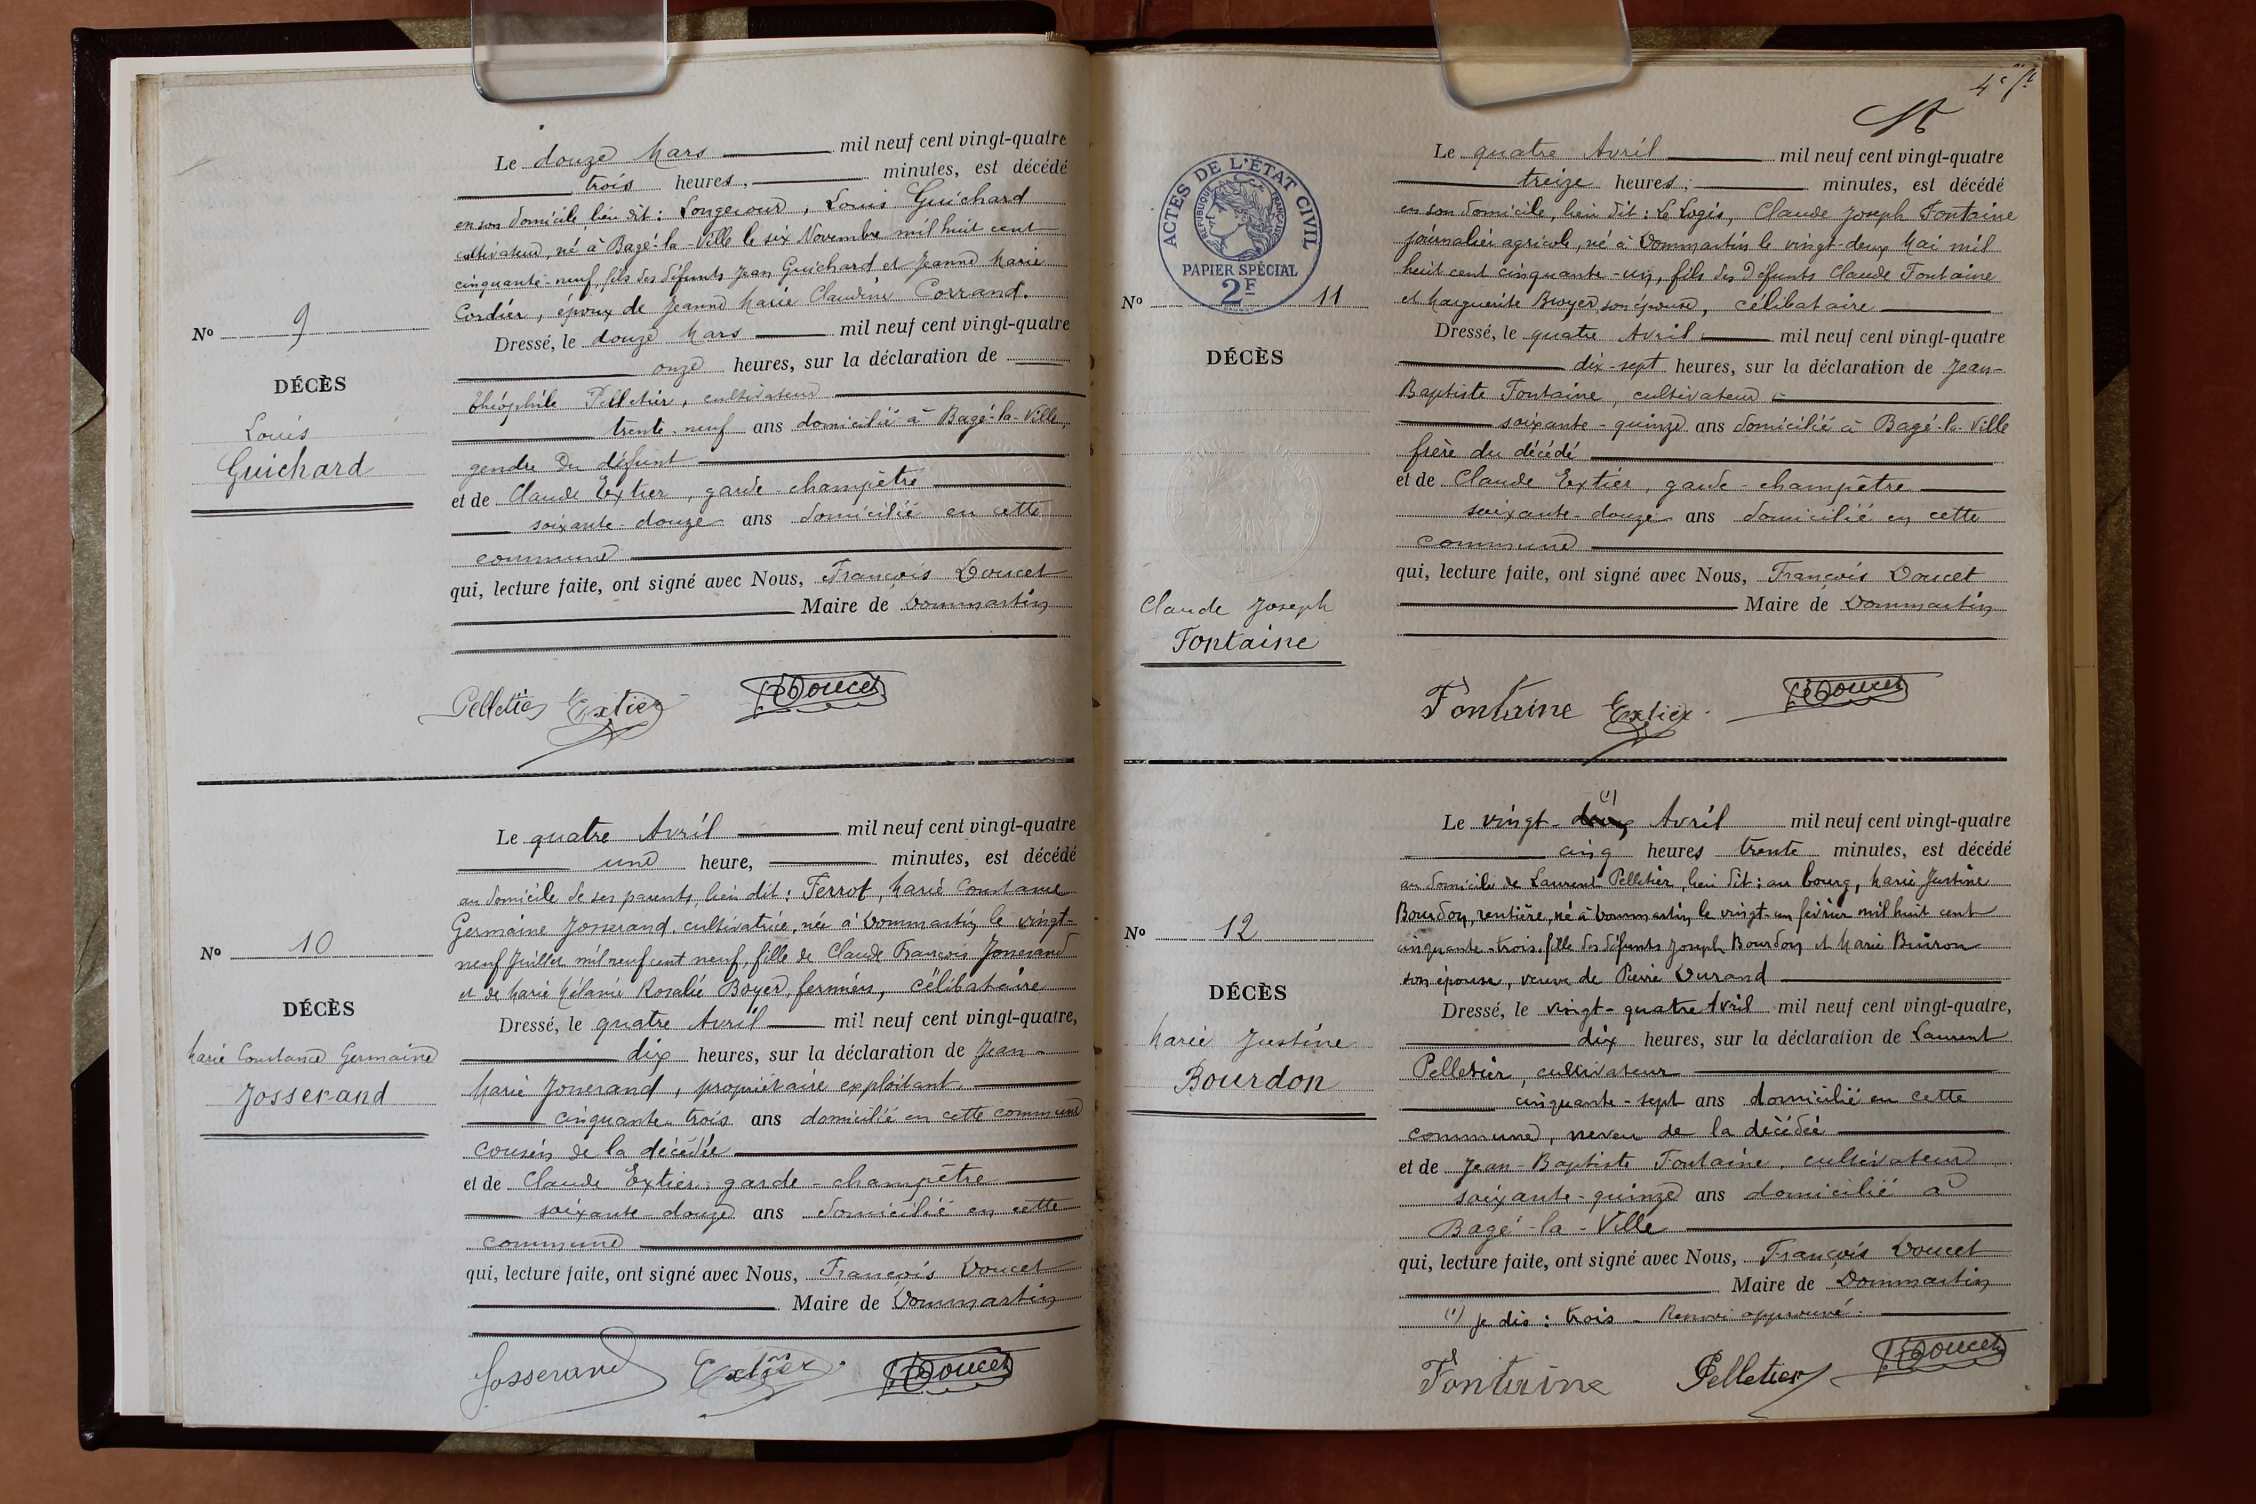 Le douze Mars mil neuf cent vingt-quatre
trois heures, minutes, est décédé
en son domicile, lieu dit : Longecour, Louis Guichard
cultivateur, né à Bagé-la-Ville le six Novembre mil huit cent
cinquante-neuf, fils des défunts Jean Guichard et Jeanne Marie
Cordier, époux de Jeanne Marie Claudine Corrand.
No 9
DÉCÈS
Louis
Guichard
Dressé, le douze Mars mil neuf cent vingt-quatre
onze heures, sur la déclaration de
Théophile Pelletier, cultivateur
trente-neuf ans domicilié à Bagé-la-Ville,
gendre du défunt
et de Claude Extier, garde-champêtre
soixante-douze ans domicilié en cette
commune
qui, lecture faite, ont signé avec Nous, François Doucet
Maire de Dommartin
Pelletier Extier Doucet
Le quatre Avril mil neuf cent vingt-quatre
une heure, minutes, est décédé
au domicile de ses parents, lieu dit : Ferrot, Marie Constance
Germaine Josserand, cultivatrice, née à Dommartin le vingt-
neuf Juillet mil neuf cent neuf, fille de Claude François Josserand
et de Marie Mélanie Rosalie Boyer, fermiers, célibataire
No 10
DÉCÈS
Marie Constance Germaine
Josserand
Dressé, le quatre Avril mil neuf cent vingt-quatre,
dix heures, sur la déclaration de Jean-
Marie Josserand, propriétaire exploitant
cinquante-trois ans domicilié en cette commune
cousin de la décédée
et de Claude Extier, garde-champêtre
soixante-douze ans domicilié en cette
commune
qui, lecture faite, ont signé avec Nous, François Doucet
Maire de Dommartin
Josserand Extier Doucet
4e ft
Le quatre Avril mil neuf cent vingt-quatre
treize heures, minutes, est décédé
en son domicile, lieu dit : Le Logis, Claude Joseph Fontaine
journalier agricole, né à Dommartin le vingt-deux Mai mil
huit cent cinquante-un, fils des défunts Claude Fontaine
et Marguerite Broyer son épouse, célibataire
ACTES DE L'ÉTAT CIVIL
RÉPUBLIQUE FRANÇAISE
PAPIER SPÉCIAL
2F
No 11
DÉCÈS
Claude Joseph
Fontaine
Dressé, le quatre Avril mil neuf cent vingt-quatre
dix-sept heures, sur la déclaration de Jean-
Baptiste Fontaine, cultivateur
soixante-quinze ans domicilié à Bagé-la-Ville
frère du décédé
et de Claude Extier, garde-champêtre
soixante-douze ans domicilié en cette
commune
qui, lecture faite, ont signé avec Nous, François Doucet
Maire de Dommartin
Fontaine Extier Doucet
Le vingt-deux (1) Avril mil neuf cent vingt-quatre
cinq heures trente minutes, est décédé
au domicile de Laurent Pelletier, lieu dit : au bourg, Marie Justine
Bourdon, rentière, né à Dommartin le vingt-un février mil huit cent
cinquante-trois, fille des défunts Joseph Bourdon et Marie Buiron
son épouse, veuve de Pierre Durand
No 12
DÉCÈS
Marie Justine
Bourdon
Dressé, le vingt-quatre Avril mil neuf cent vingt-quatre,
dix heures, sur la déclaration de Laurent
Pelletier, cultivateur
cinquante-sept ans domicilié en cette
commune, neveu de la décédée
et de Jean-Baptiste Fontaine, cultivateur
soixante-quinze ans domicilié à
Bagé-la-Ville
qui, lecture faite, ont signé avec Nous, François Doucet
Maire de Dommartin
(1) Je dis : trois - Renvoi approuvé.
Fontaine Pelletier Doucet